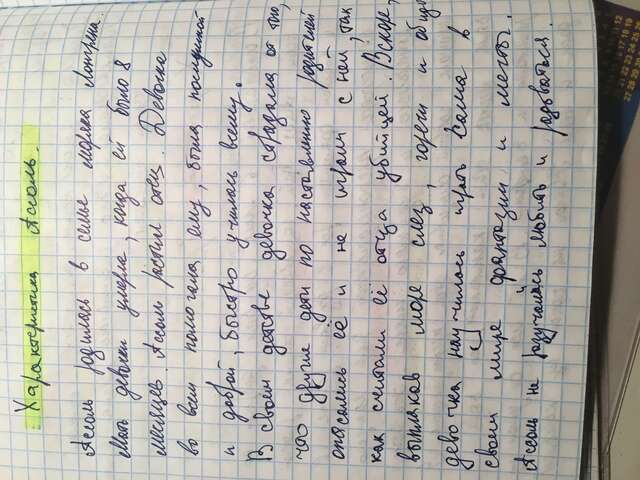 Характеристика Ассоль.
Ассоль родилась в семье моряка Лонгрена.
Мать девочки умерла, когда ей было 8
месяцев. Ассоль растил отец. Девочка
во всем помогала ему, была послушной
и доброй, быстро училась всему.
В своем детстве девочка страдала от то,
что другие дети по наставлению родителей
опасались её и не играли с ней, так
как считали её отца убийцей. Вскоре,
выплакав море слез, горечи и обиды
девочка научилась играть сама в
своем мире фантазии и мечты.
Ассоль не разучилась любить и радоваться.